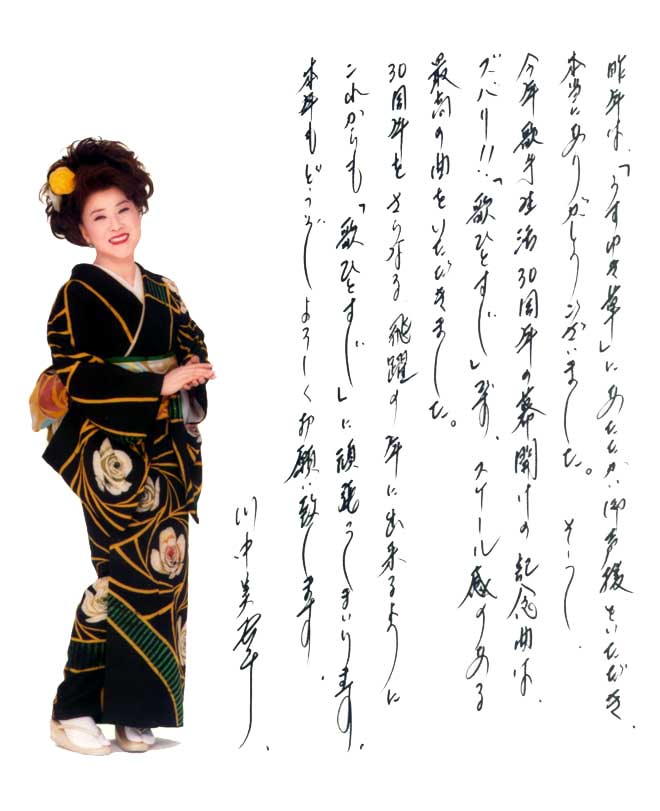 昨年は、「うすゆき草」にあたたかい御声援をいただき、
本当にありがとうございました。　そして
今年歌手生活30周年の幕開けの記念曲は、
ズバリ!!「歌ひとすじ」です、スケール感のある
最高の曲をいただきました。
30周年をさらなる飛躍の年に出来るように
これからも「歌ひとすじ」に頑張ってまいります。
本年もどうぞよろしくお願い致します。
川中美幸